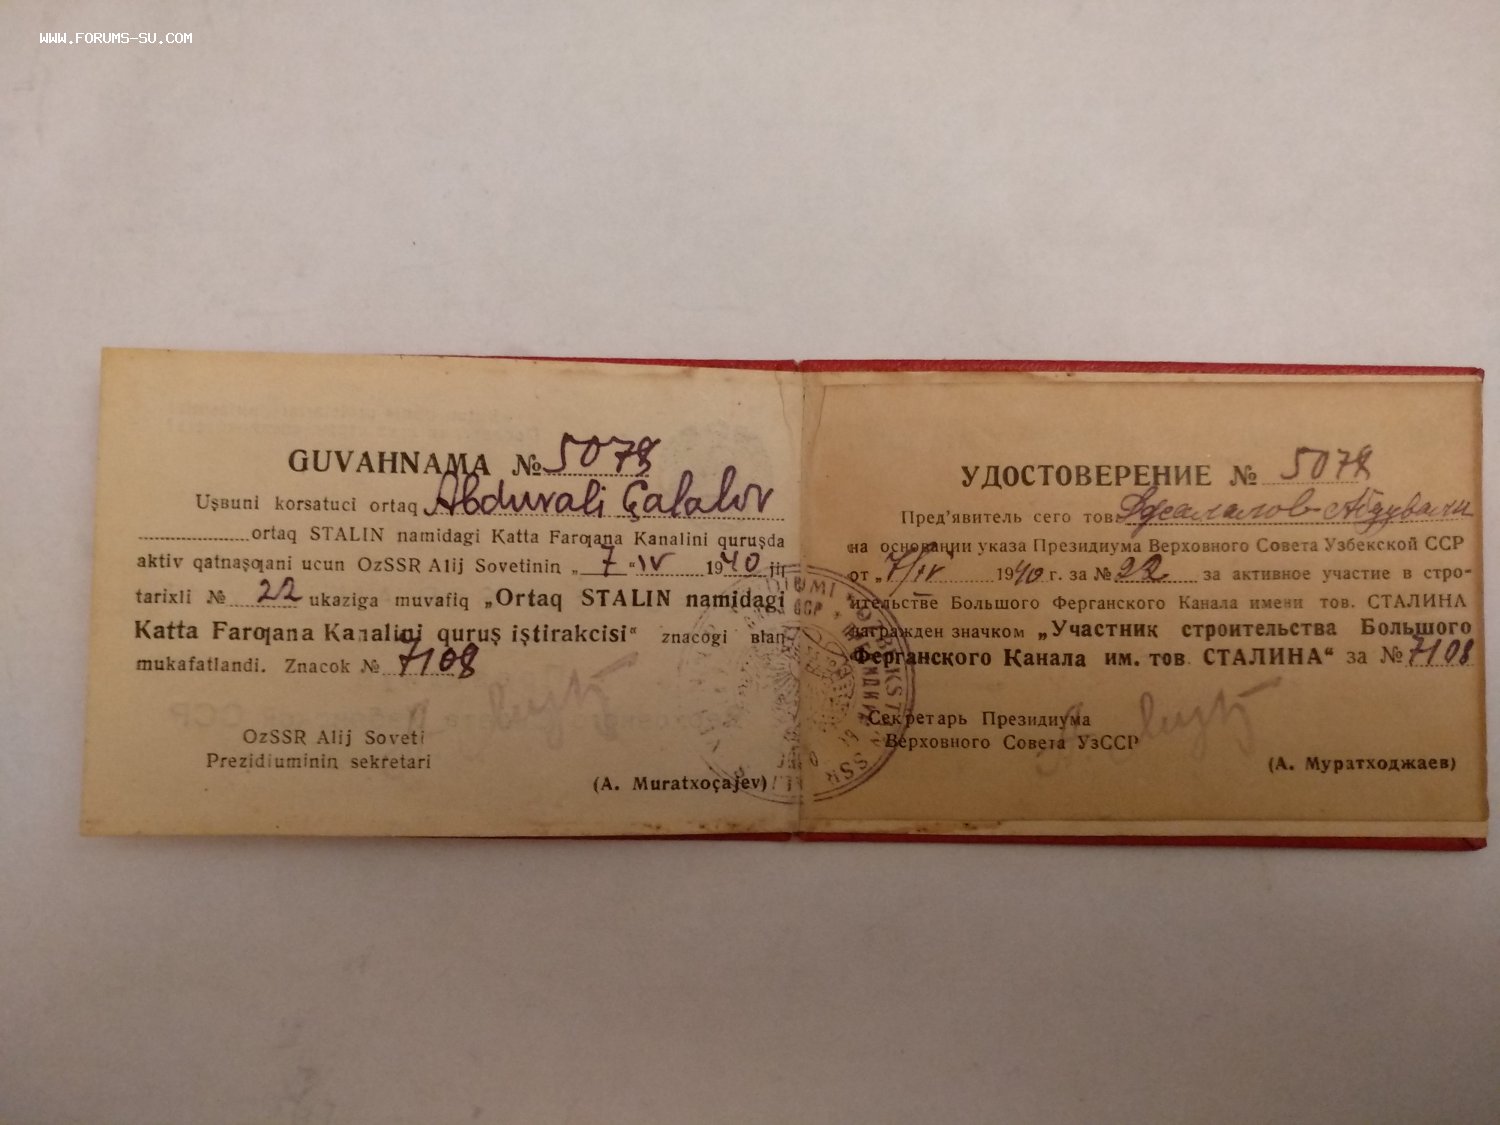 WWW.FORUMS-SU.COM
GUVAHNAMA № 5078
Uşʙuni korsatuci ortaq Abduvali Çalalov
ortaq STALIN namidagi Katta Farƣana Kanalini quruşda
aktiv qatnaşƣani ucun OzSSR Alij Sovetinin „7“ IV 1940 jil
tarixli № 22 ukaziga muvafiq „Ortaq STALIN namidagi
Katta Farƣana Kanalini quruş iştirakcisi“ znacogi ʙlan
mukafatlandi. Znacok № 7108
OzSSR Alij Soveti
Prezidiuminin sekretari
(A. Muratxoçajev)
УДОСТОВЕРЕНИЕ № 5078
Пред'явитель сего тов. Джалалов Абдували
на основании указа Президиума Верховного Совета Узбекской ССР
от „7/IV“ 1940 г. за № 22 за активное участие в стро-
ительстве Большого Ферганского Канала имени тов. СТАЛИНА
награжден значком „Участник строительства Большого
Ферганского Канала им. тов СТАЛИНА“ за № 7108
Секретарь Президиума
Верховного Совета УзССР
(А. Муратходжаев)